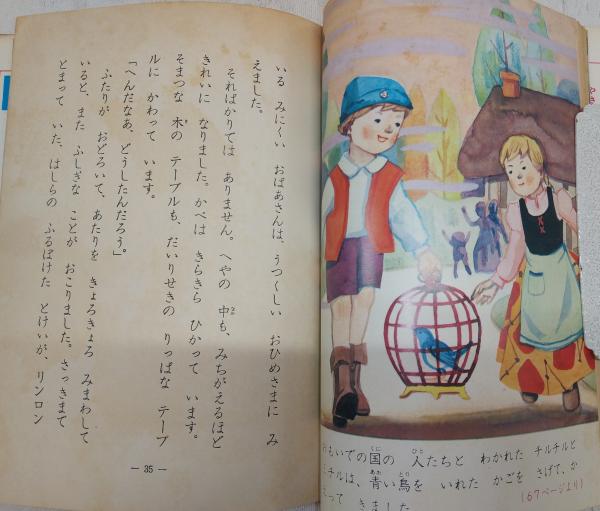 おもいでの国の 人たちと わかれた チルチルと
ミチルは、青い鳥を いれた かごを さげて、か
えって きました
(67ページより)
いる みにくい おばあさんは、うつくしい おひめさまに み
えました。
そればかりでは ありません。へやの 中も、みちがえるほど
きれいに なりました。かべは きらきら ひかって います。
そまつな 木の テーブルも、だいりせきの りっぱな テーブ
ルに かわって います。
「へんだなあ、どうしたんだろう。」
ふたりが おどろいて、あたりを きょろきょろ みまわして
いると、また ふしぎな ことが おこりました。さっきまで
とまって いた、はしらの ふるぼけた とけいが、リンロン
— 35 —